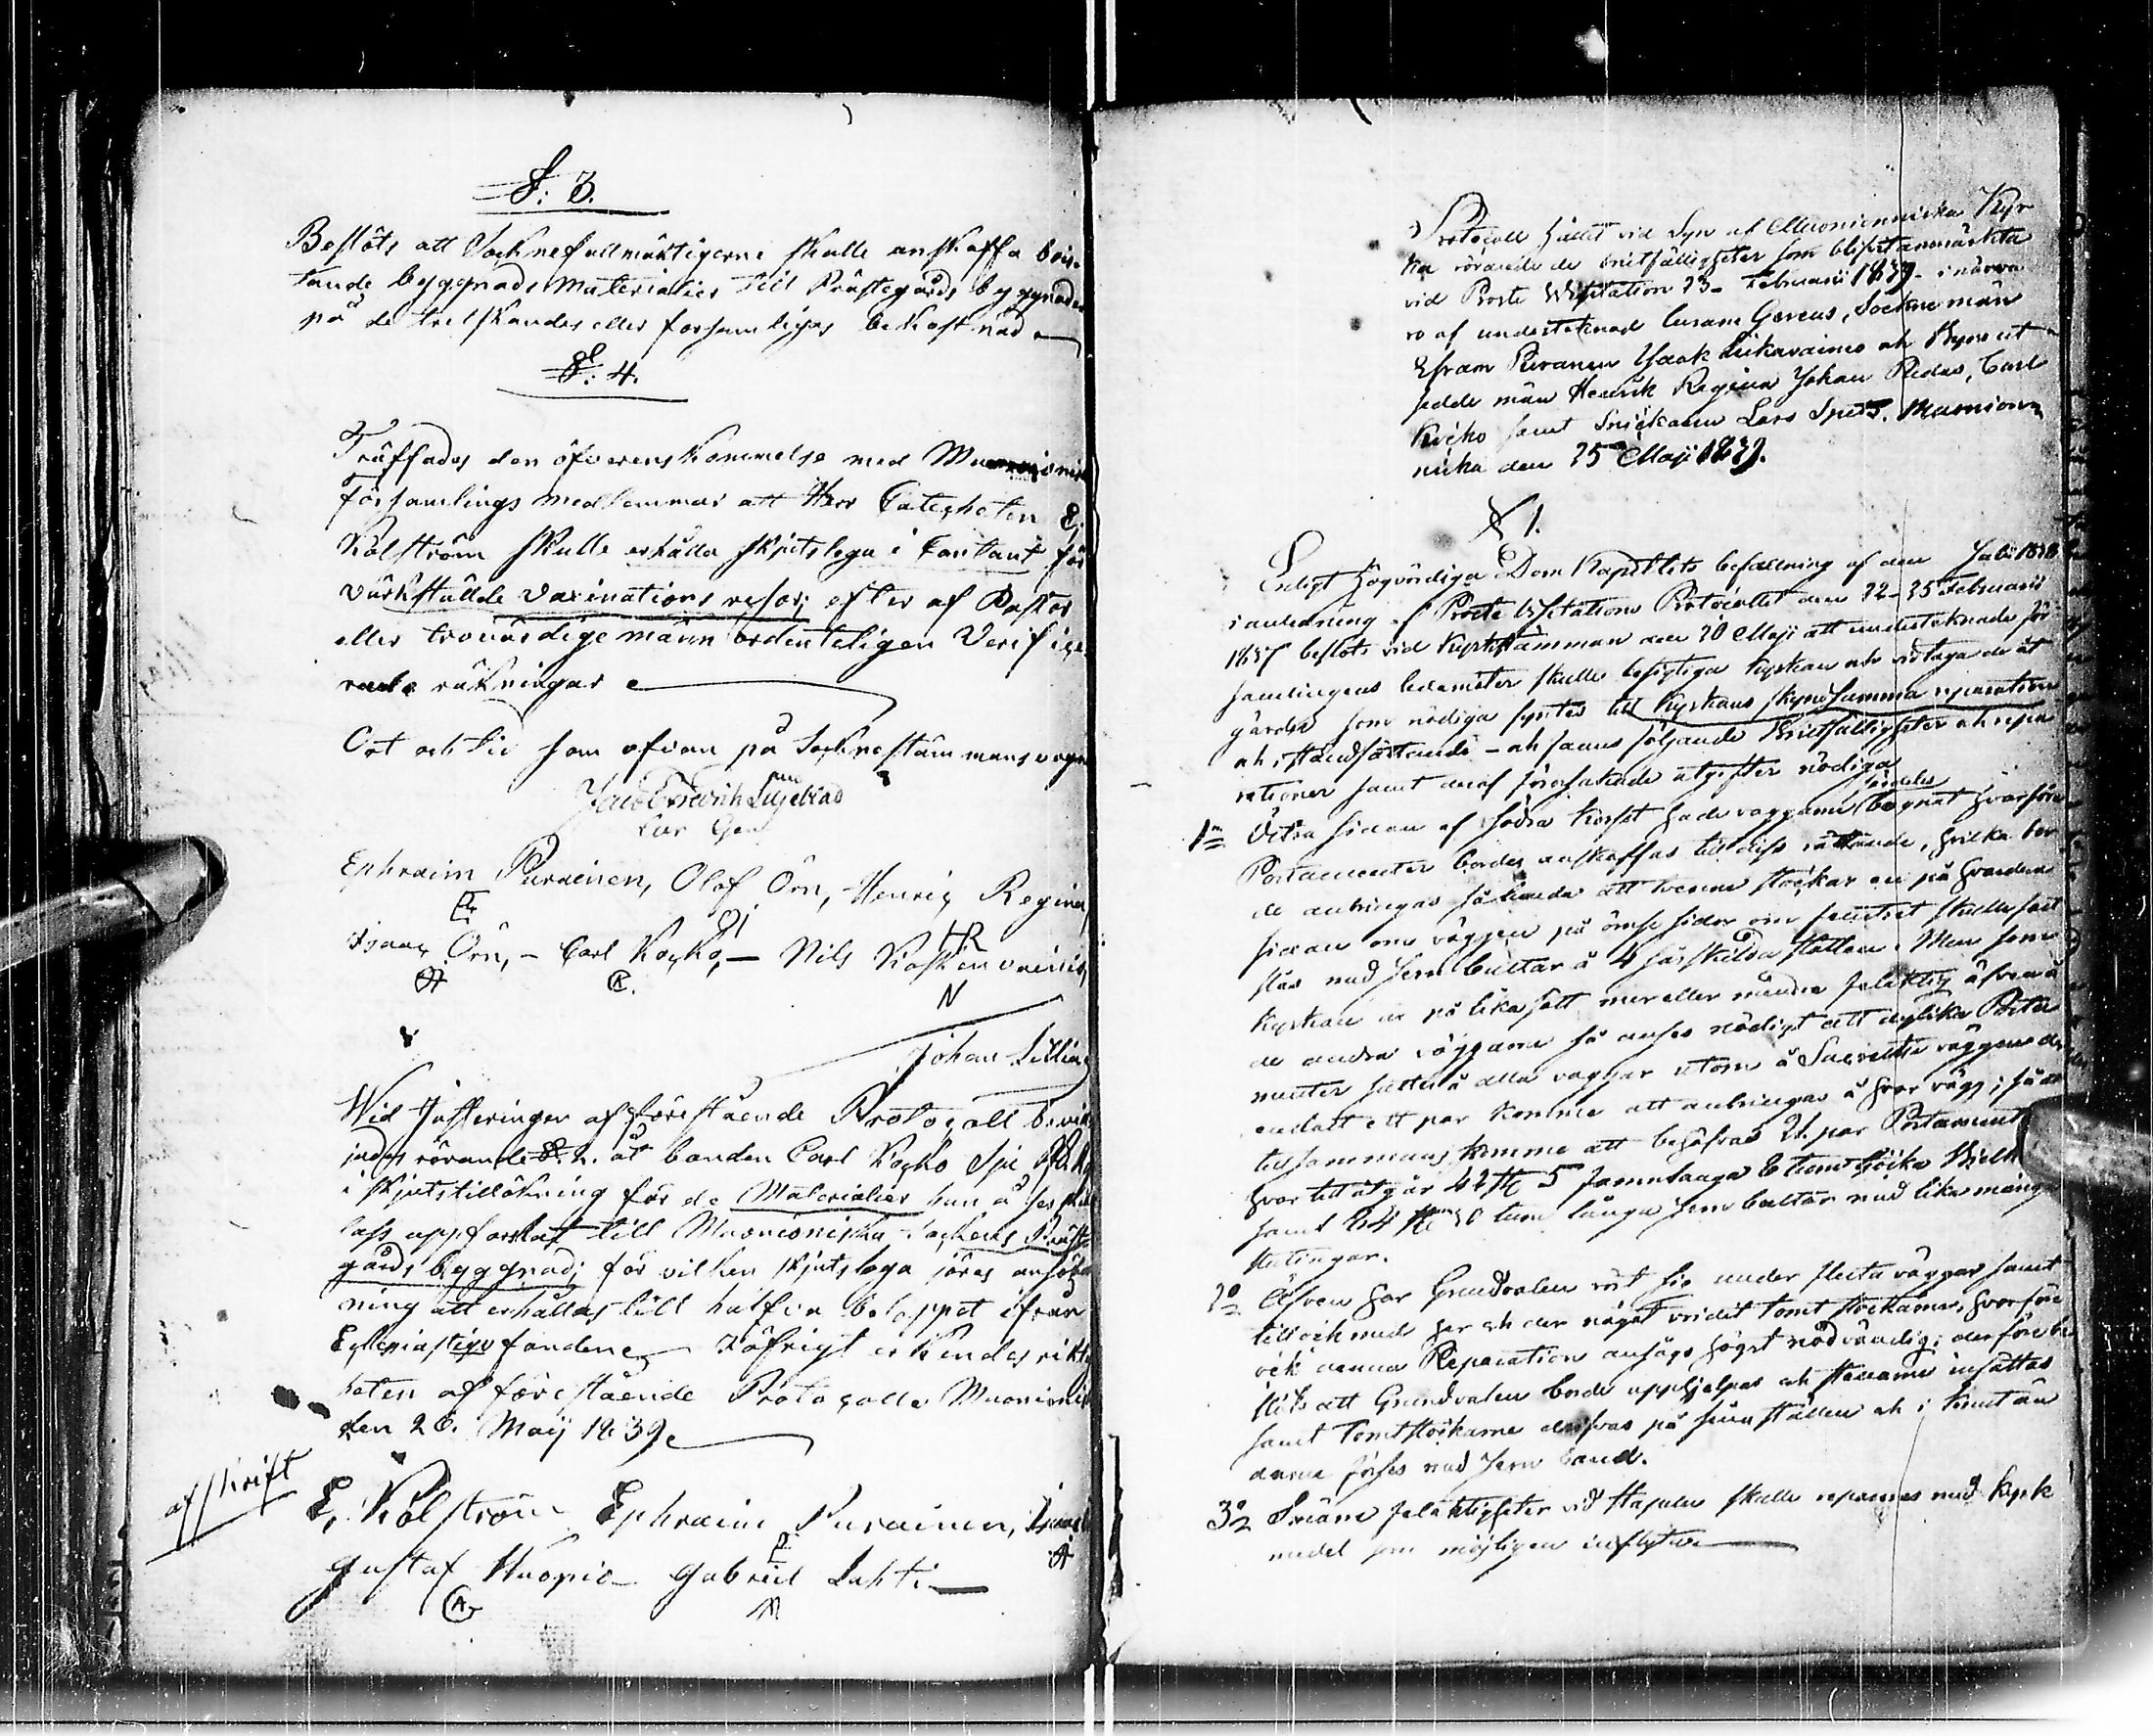 §: 3.
Beslöts att Socknefullmäktigerne skulle anskaffa bris-
tande byggnads Materialier till Prästegårds byggnaden
på de tredskandes eller forsumliges bekostnad
§: 4.
Träffades den öfverenskommelse med Muonionis
Församlings medlemmar att Herr Categheten E,
Kolström skulle erhålla skjutslega i Contant för
värkstälde Vaxinations resor; efter af Pastor
eller trovärdige männ ordenteligen Verifice-
rade räkningar
Ort och tid som ofvan på Socknestämmans vagnar
Lilljeblad
Ephraim Puranen, Olof Örn, Henric Regina,
Isaac Örn, - Carl Kocko, - Nils Koskenvainio,
N
Johan
Wid Justeringen af förestående Protocoll bevil-
jades rörande §. 2. åt bonden Carl Kocko
i skjutstillökning för de Materialier han å
lass uppforslat till Muonioniska Sockens Präste
gårds byggnad; för vilken skjutslega göres anhåll
ning att erhållas till halfva beloppet ifrån
Eclesiastiqve fonden I öfrigt erkändes rikti
heten af förestående Protocoll. Muonionisk
den 26. Maij 1839.
afskrift
E, Kolström Ephraim Purainen, Isaac
Gustaf Kuopio - Gabriel Lahti
Protocoll hållit vid Syn af Muonioniska Kyr
ka rörande de bristfälligheter som blifvit anmärkta
vid Proste Visitation 23 Februarii 1837 i närva
ro af undertecknad Sockne män
Efram Puranen Isaak Liikavainio och Byns ut
sedde män Henrik Regina Johan Carl
Kocko samt Snickaren Lars Muonion
niska den 25 Maji 1839.
§ 1.
Enligt Högvördiga Dom Kapitlets befallning af den Julii 1838
i anledning af Proste Visitations Protocollet den 22-25 Februarii
1837 beslöts vid Kyrkstämman den 20 Maji att undertecknade för
samlingens ledamöter skulle besigtiga kyrkan och vidtaga de åt
gärder som nödiga syntes till Kyrkans skyndsamma reparation
och iståndsättande - och fanns följande bristfälligheter och repa
rationer samt deraf förorsakade utgifter nödiga
1:o Östra sidan af södra korset hade väggarne bognat hvarföre
Portamenter borde anskaffas till dess rättande, hvilka bor
de anbringas således att tvenne stockar en på hvardera
sidan om väggen på ömse sidor om fenstret skulle fast
slås med jern bultar å 4 särskilda ställen. Men som
kyrkan är på lika sätt mer eller mindre felaktig äfven å
de andra väggarne så anses nödigt att dylika Porta
menter sättes å alla väggar utom å Sacristie väggen der
endast ett par komme att anbringas å hvar vägg; så att
tillsammans komme att behöfvas 21 par Portament
hvar till åtgår 42 st 5 famnslånga 6 tum tjocka
samt 84 st 30 tum långa jern bultar med lika många
2:o Äfven har Grundvalen rört sig under flesta väggar samt
till och med här och der något vridit tomt stockarne, hvarföre
och denna Reparation ansågs högst nödvändig; derföre be
slöts att Grundvalen borde upphjelpas och stenarne insättas
samt Tomtstockarne drifvas på sina ställen och i knutän
darne förses med jern band.
3:o felaktigheter vid Stapeln skulle repareras med kyrk
medel som möjligen inflyter